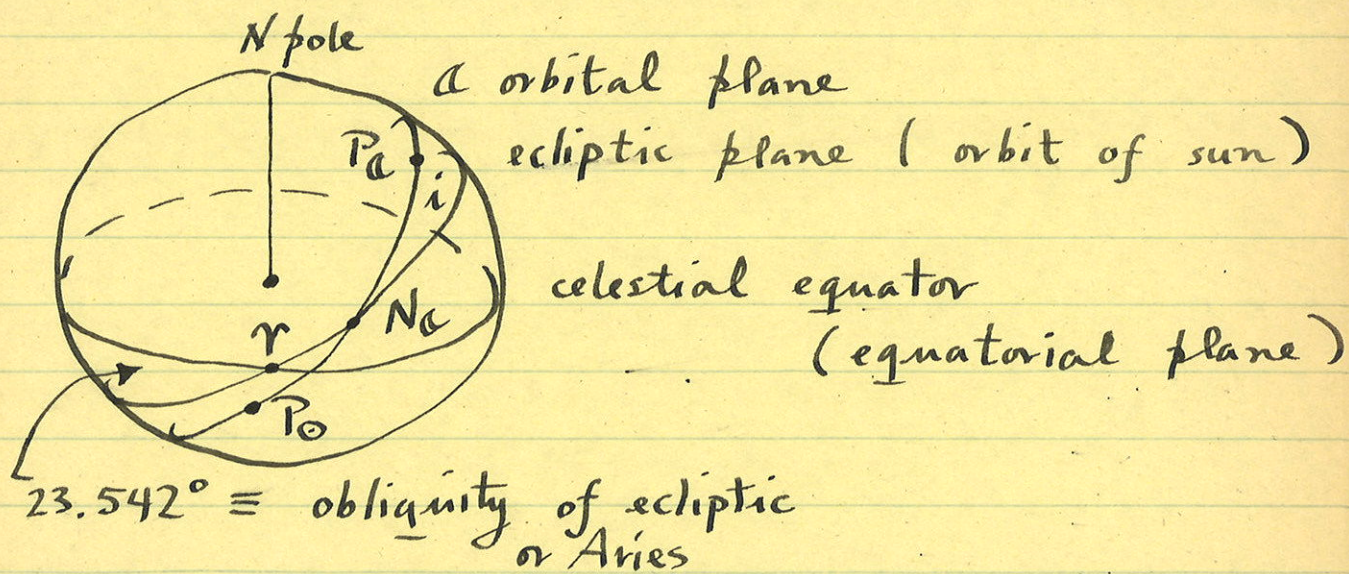 N pole
☾ orbital plane
P☾
ecliptic plane ( orbit of sun )
i
celestial equator
N☾
♈
(equatorial plane)
P⊙
23.542° ≡ obliquity of ecliptic
or Aries